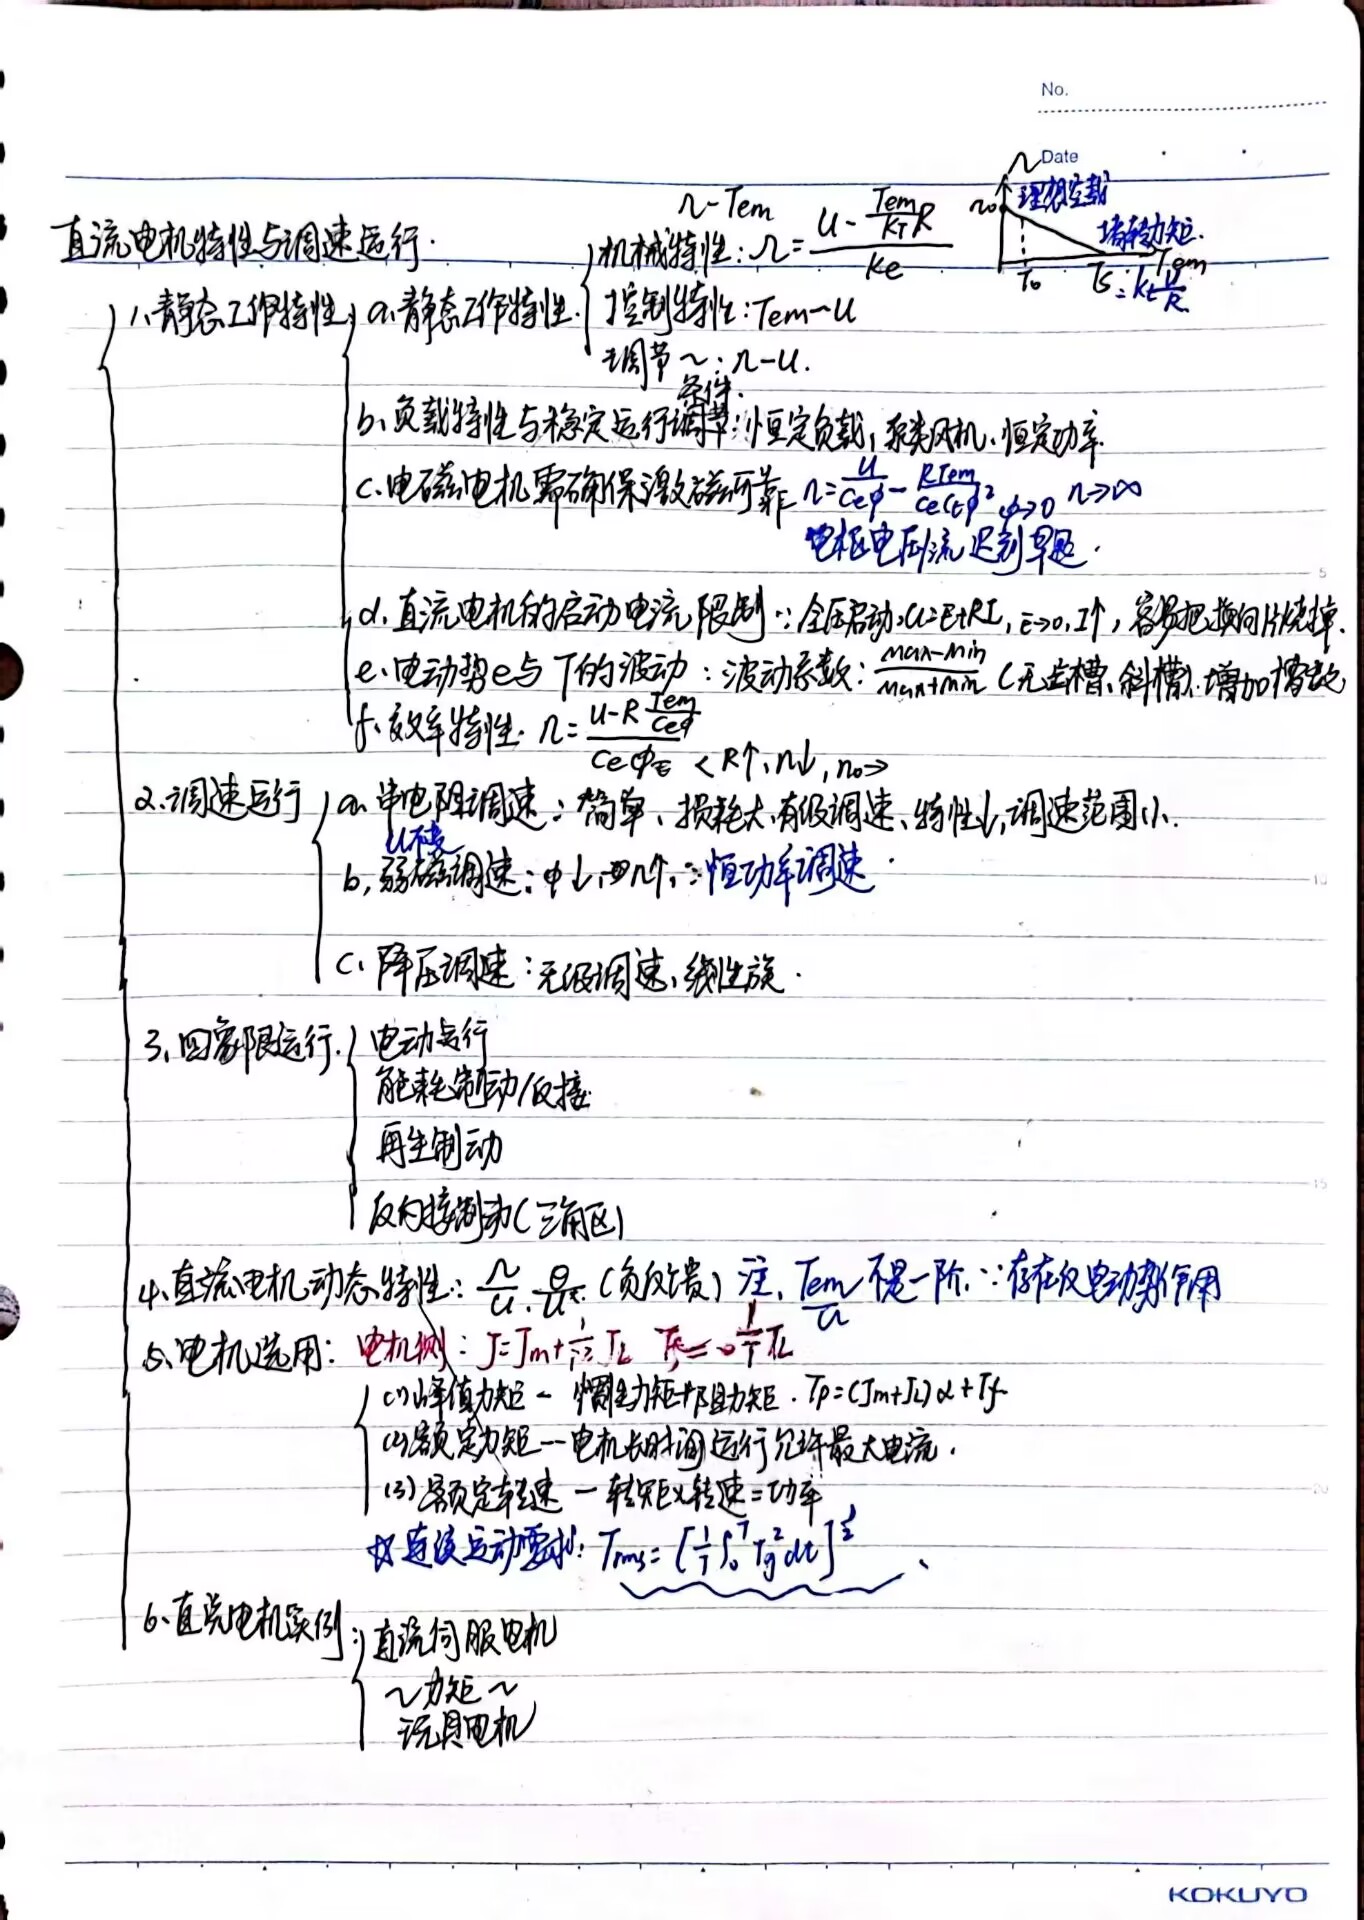 No.
Date
直流电机特性与调速运行.
n-Tem
机械特性: n = (U - Tem/KT R) / Ke
n n0 理想空载 堵转力矩. T0 Ts = Kt U/R Tem
1、静态工作特性 a.静态工作特性.
控制特性: Tem～U
调节～: n-U.
条件.
b、负载特性与稳定运行: 恒定负载, 泵类风机、恒定功率.
c、电磁电机需确保激磁可靠 n = U/Ceφ - RTem/CeCtφ² φ→0 n→∞
电枢电压流迟到早退.
d、直流电机的启动电流限制 ∵全压启动, U=E+RI, E→0, I↑, 容易把换向片烧掉.
e、电动势e与T的波动: 波动系数: (max-min)/(max+min) (无齿槽、斜槽)、增加槽数
f、效率特性. n = (U - R Tem/Ceφ) / Ceφ
< R↑, n↓, n0→
2、调速运行 a、串电阻调速: 简单、损耗大、有级调速、特性↓, 调速范围小.
U不变
b, 弱磁调速: φ↓, n↑, ∵恒功率调速.
c、降压调速: 无级调速、线性族.
3、四象限运行. 电动运行
能耗制动/反接
再生制动
反向接制动(三角区)
4、直流电机动态特性: n/U、θ/U (负反馈) 注、Tem/U 不是一阶, ∵存在反电动势作用
5、电机选用: 电机侧: J=Jm+1/i² JL
(1)峰值力矩 - 惯性力矩+阻力矩. Tp=(Jm+JL)α+Tf
(2)额定力矩 - 电机长时间运行允许最大电流.
(3)额定转速 - 转矩×转速=功率
连续运动要求: Trms = [1/T ∫₀ᵀ Tg² dt]^½
6、直流电机实例: 直流伺服电机
～力矩～
玩具电机
5
10
15
20
KOKUYO